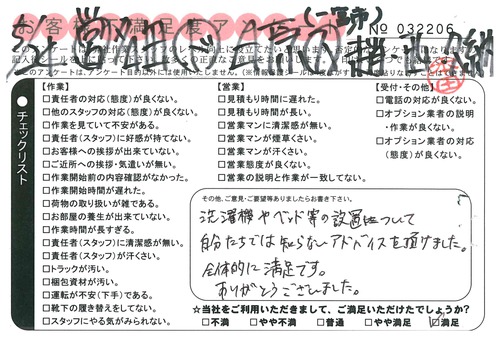 お客様満足度アンケート
(一宮市)
№ 032206
【作業】
□責任者の対応(態度)が良くない。
□他のスタッフの対応(態度)が良くない。
□作業を見ていて不安がある。
□責任者(スタッフ)に好感が持てない。
□お客様への挨拶が出来ていない。
□ご近所への挨拶・気遣いが無い。
□作業開始前の内容確認がなかった。
□作業開始時間が遅れた。
□荷物の取り扱いが雑である。
□お部屋の養生が出来ていない。
□作業時間が長すぎる。
□責任者(スタッフ)に清潔感が無い。
□責任者(スタッフ)が汗くさい。
□トラックが汚い。
□梱包資材が汚い。
□運転が不安(下手)である。
□靴下の履き替えをしてない。
□スタッフにやる気がみられない。
【営業】
□見積もり時間に遅れた。
□見積もり時間が長い。
□営業マンに清潔感が無い。
□営業マンが煙草くさい。
□営業マンが汗くさい。
□営業態度が良くない。
□営業の説明と作業が一致してない。
【受付・その他】
□電話の対応が良くない。
□オプション業者の説明
・作業が良くない。
□オプション業者の対応
(態度)が良くない。
チェックリスト
その他、ご意見・ご要望等ありましたらお書き下さい。
洗濯機やベッド等の設置について
自分たちでは知らないアドバイスを頂けました。
全体的に満足です。
ありがとうございました。
☆当社をご利用いただきまして、ご満足いただけたでしょうか?
□不満 □やや不満 □普通 □やや満足 ☑満足